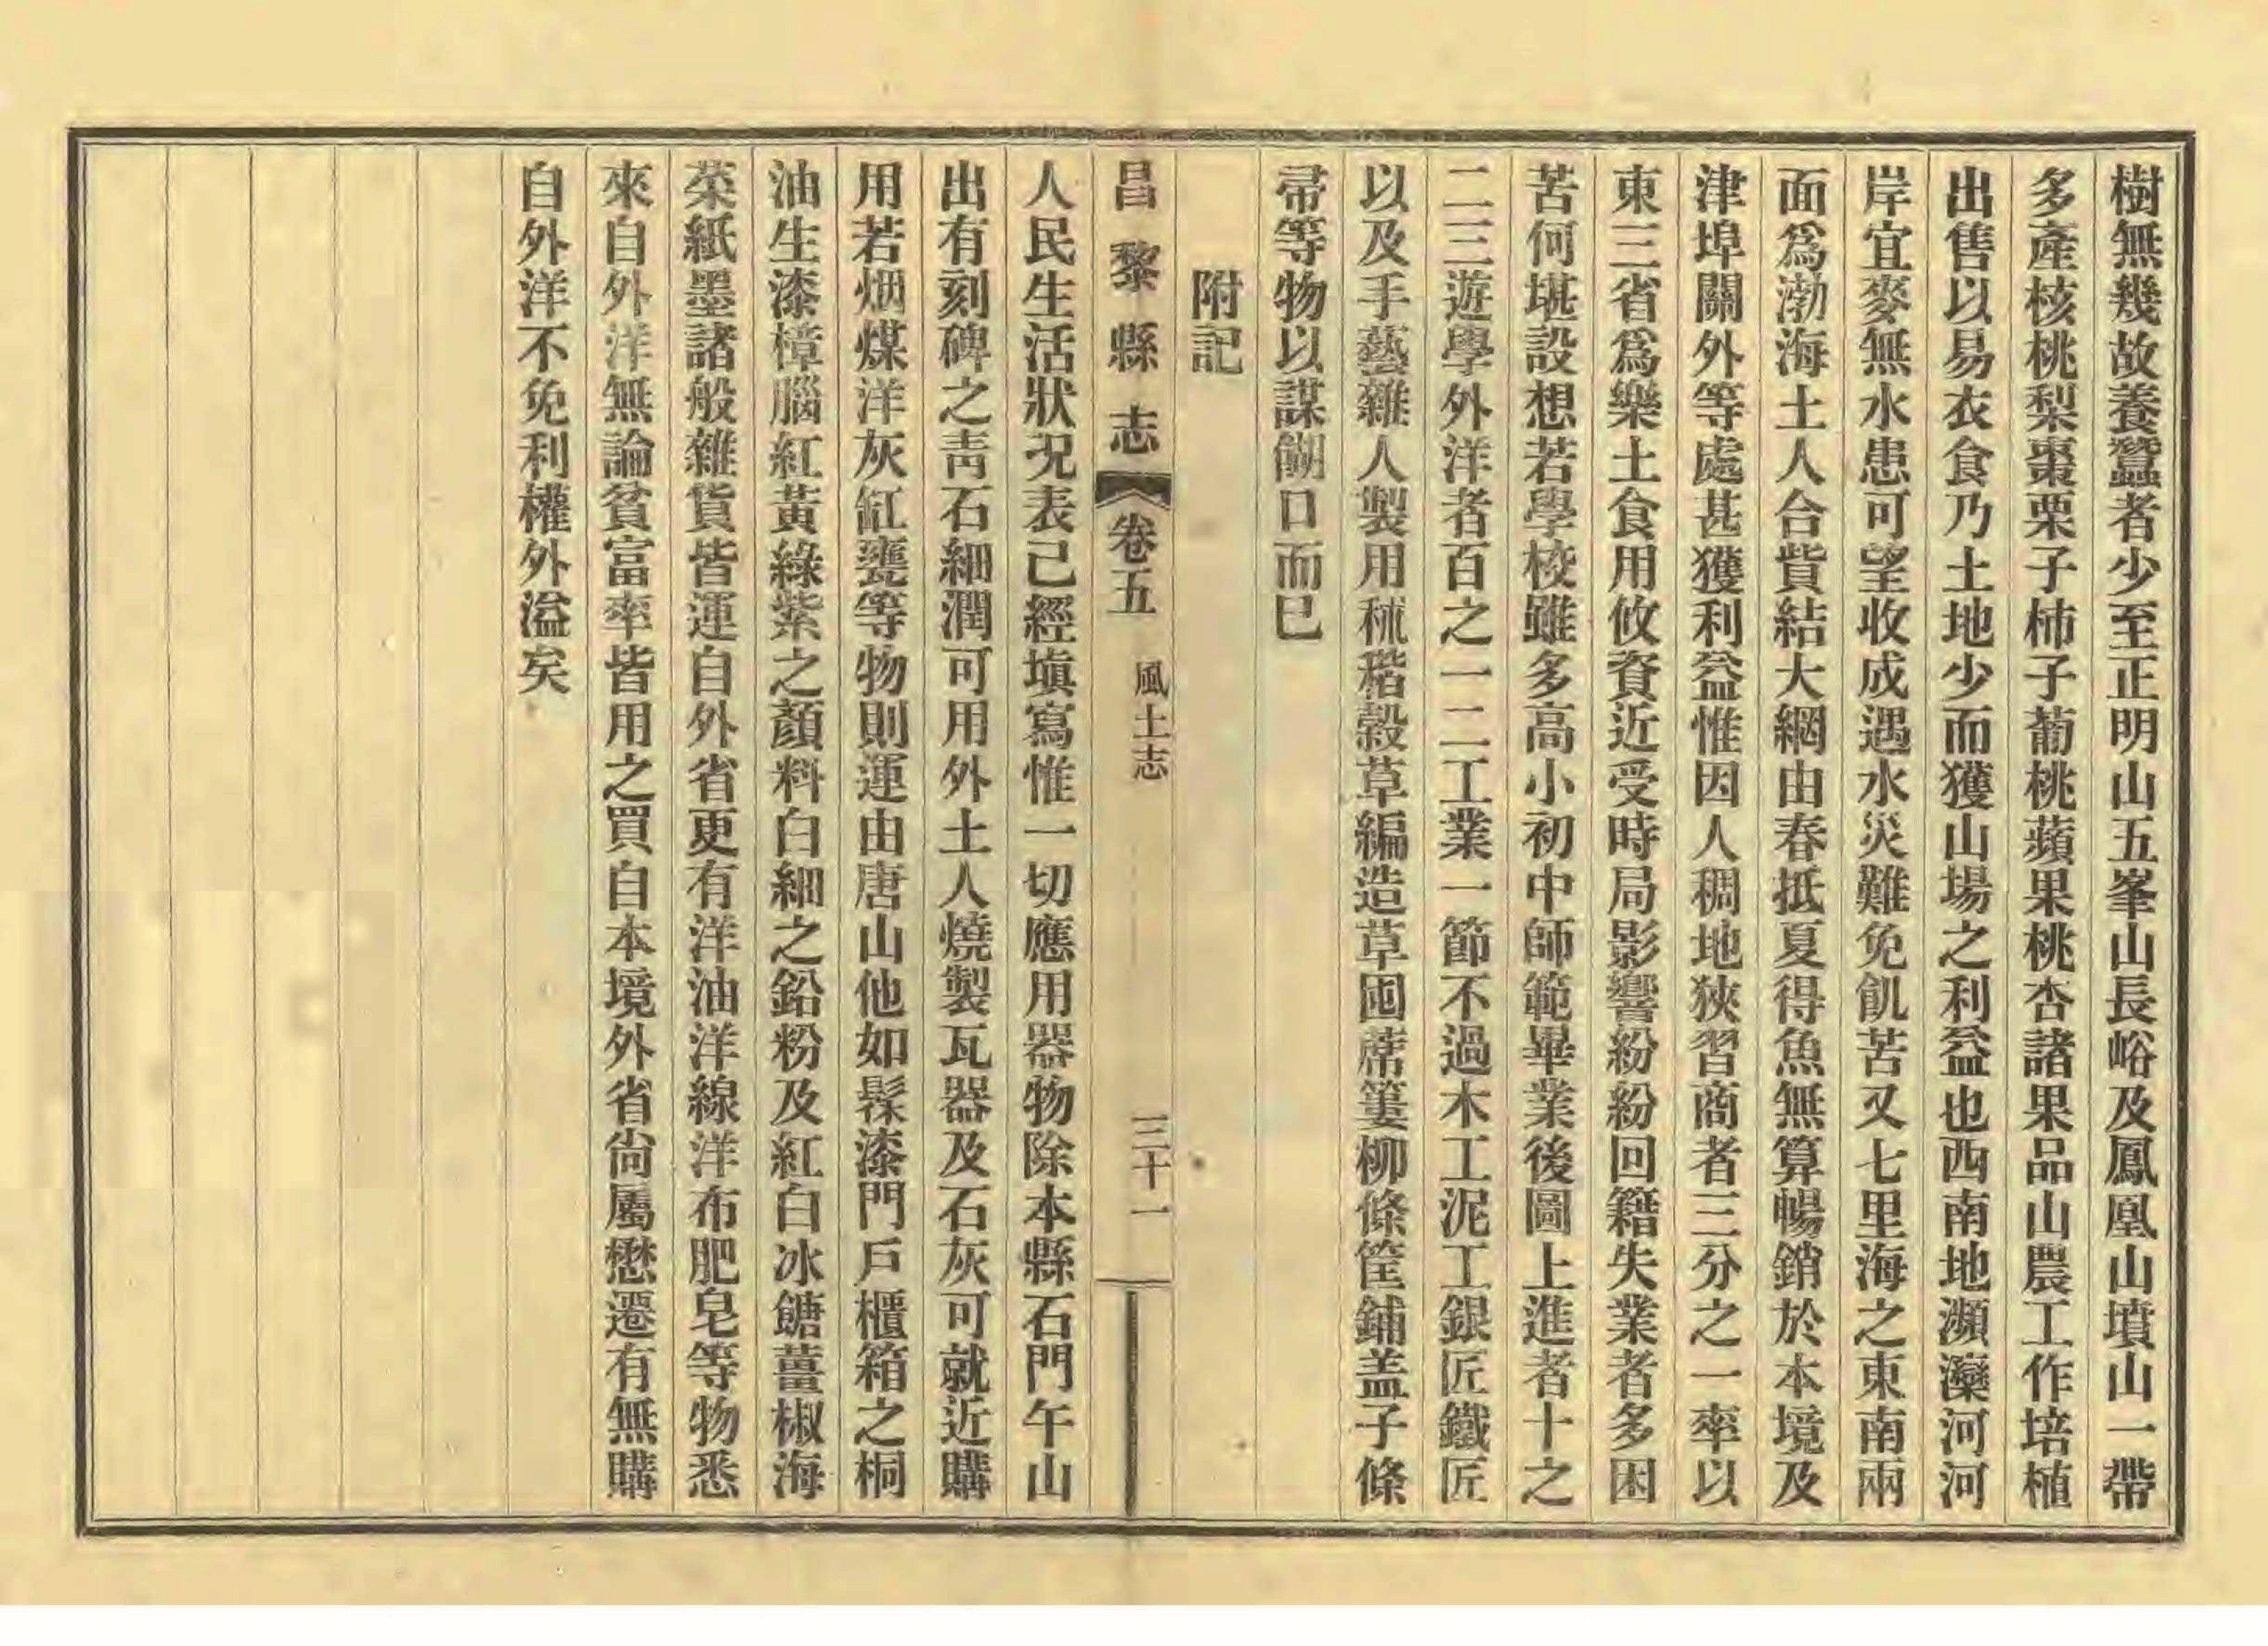 樹無幾故養蠶者少至正明山五峯山長峪及鳳凰山墳山一帶
多產核桃梨棗栗子柿子葡桃蘋果桃杏諸果品山農工作培植
出售以易衣食乃土地少而獲山場之利益也西南地瀕灤河河
岸宜麥無水患可望收成遇水災難免飢苦又七里海之東南兩
面爲渤海土人合貲結大網由春抵夏得魚無算暢銷於本境及
津埠關外等處甚獲利益惟因人稠地狹習商者三分之一率以
東三省爲樂土食用攸資近受時局影響紛紛回籍失業者多困
苦何堪設想若學校雖多高小初中師範畢業後圖上進者十之
二三遊學外洋者百之一二工業一節不過木工泥工銀匠鐵匠
以及手藝雜人製用秫稭穀草編造草囤蓆簍柳條筐鋪盖子條
帚等物以謀餬口而已
附記
昌黎縣志 卷五 風土志 三十一
人民生活狀況表已經塡寫惟一切應用器物除本縣石門午山
出有刻碑之靑石細潤可用外土人燒製瓦器及石灰可就近購
用若烟煤洋灰缸甕等物則運由唐山他如髹漆門戶櫃箱之桐
油生漆樟腦紅黃綠紫之顏料白細之鉛粉及紅白冰餹薑椒海
菜紙墨諸般雜貨皆運自外省更有洋油洋線洋布肥皂等物悉
來自外洋無論貧富率皆用之買自本境外省尙屬懋遷有無購
自外洋不免利權外溢矣